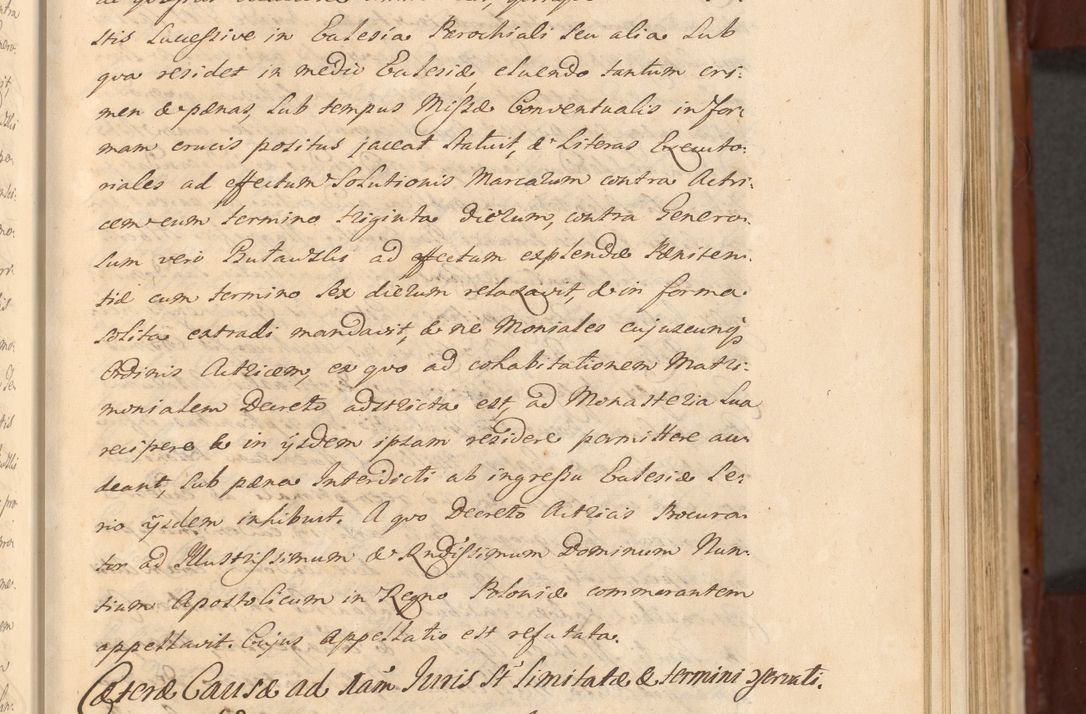 stis Successive in Ecclesia Parochiali seu alia sub
qva residet in medio Ecclesiæ, eluendo tantum cri:
men & pænas, sub tempus Missæ Conventualis in for:
mam crucis positus jaceat statuit, & Literas Executo:
riales ad effectum Solutionis Marcarum contra Actri:
cem cum termino triginta dierum, contra Genero:
sum vero Putawski ad effectum explendæ Pæniten:
tiæ cum termino sex dierum relaxavit, & in forma
solita extradi mandavit, & ne Moniales cujuscunq3
Ordinis Actricem, ex qvo ad cohabitationem Matri:
monialem Decreto adstricta est, ad Monasteria sua
recipere & in ijsdem ipsam residere permittere au:
deant, sub pæna Interdicti ab ingressu Ecclesiæ se:
rio ijsdem inhibuit. A qvo Decreto Actricis Procura:
tor ad Illustrissimum & Rndissimum Dominum Nun:
tium Apostolicum in Regno Poloniæ commorantem
appellavit. Cujus Appellatio est refutata.
Cæteræ Causæ ad nam Juris st limitatæ & termini servati.